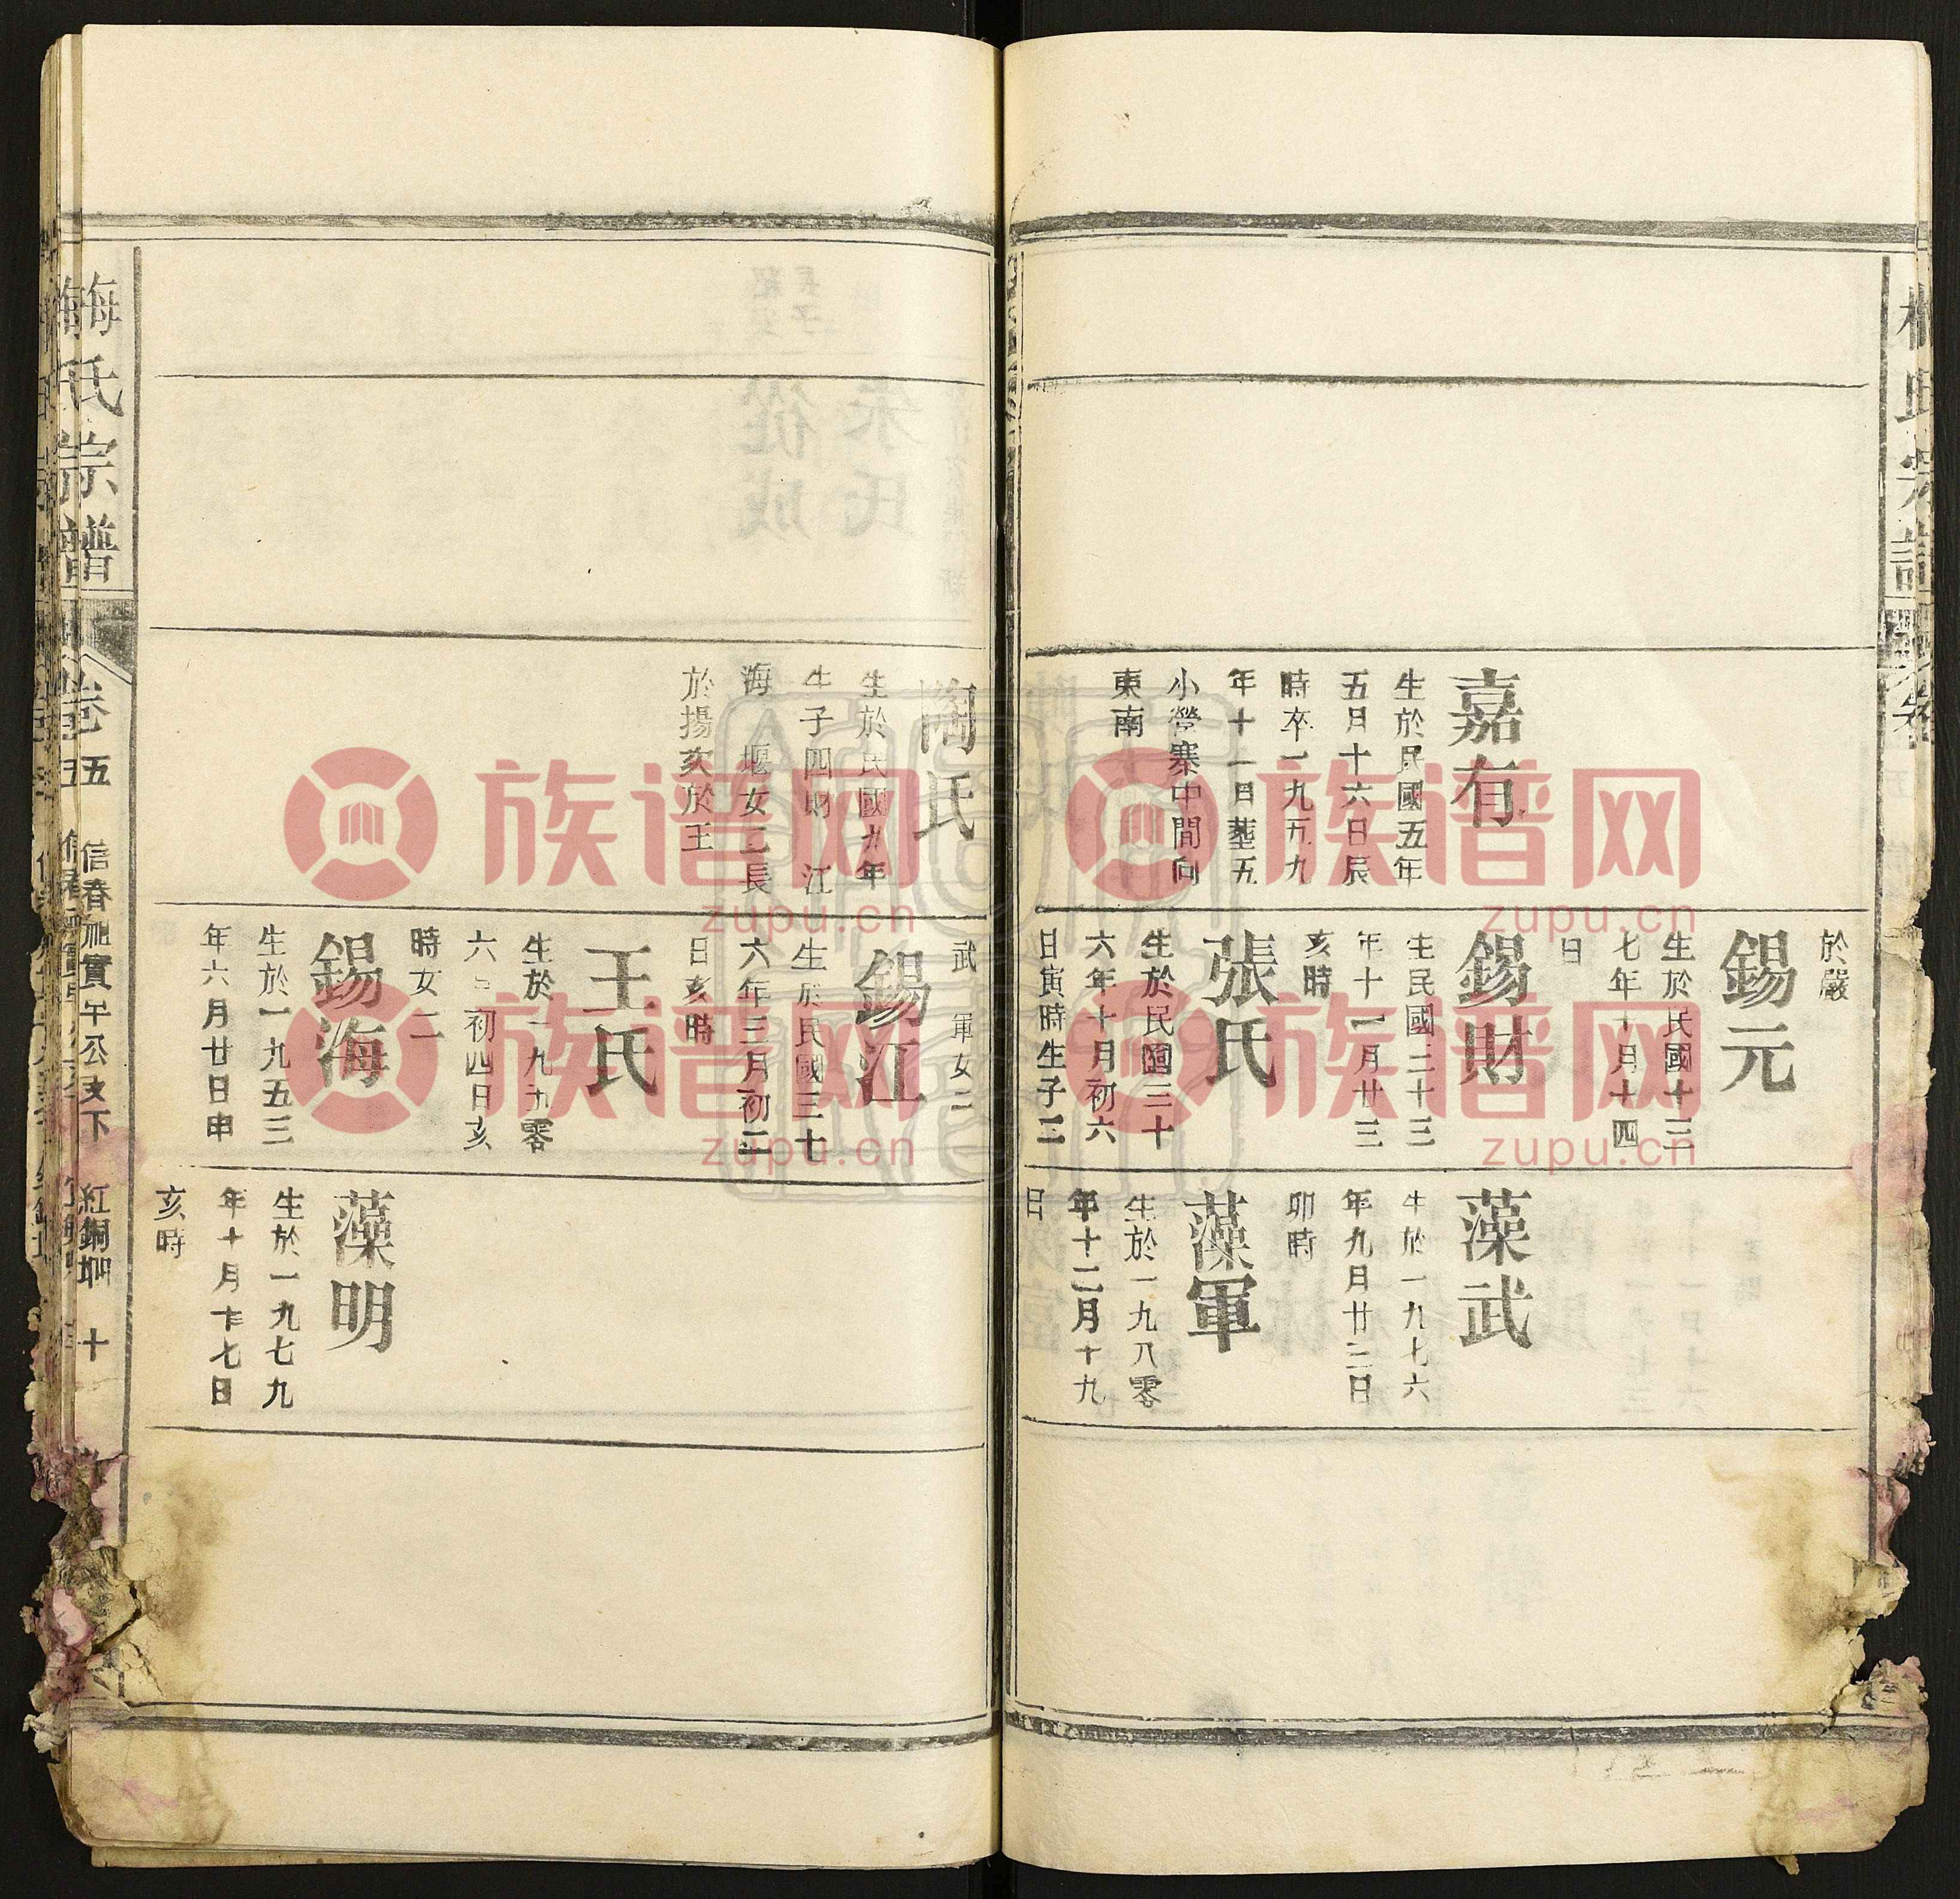 嘉有
生於民國五年
五月十六日辰
時卒一九五九
年十一日塟五
小營寨中間向
東南
於嚴
錫元
生於民國十三
七年十月十四
日
錫財
生民國二十三
年十一月廿三
亥時
張氏
生於民國三十
六年十月初六
日寅時生子二
藻武
生於一九七六
年九月廿二日
卯時
藻軍
生於一九八零
年十二月十九
日
陶氏
生於民國九年
生子四財 江
海 堰女二長
於揚亥於王
武 軍女二
錫江
生於民國三七
六年三月初二
日亥時
王氏
生於一九五零
初四日亥
時女二
錫海
生於一九五三
年六月廿日申
藻明
生於一九七九
年十月 七日
亥時
梅氏宗譜
卷五
信春 實午公支下
紅銅
十
族谱网
zupu.cn
族谱网
zupu.cn
族谱网
zupu.cn
族谱网
zupu.cn
族谱网
族谱网